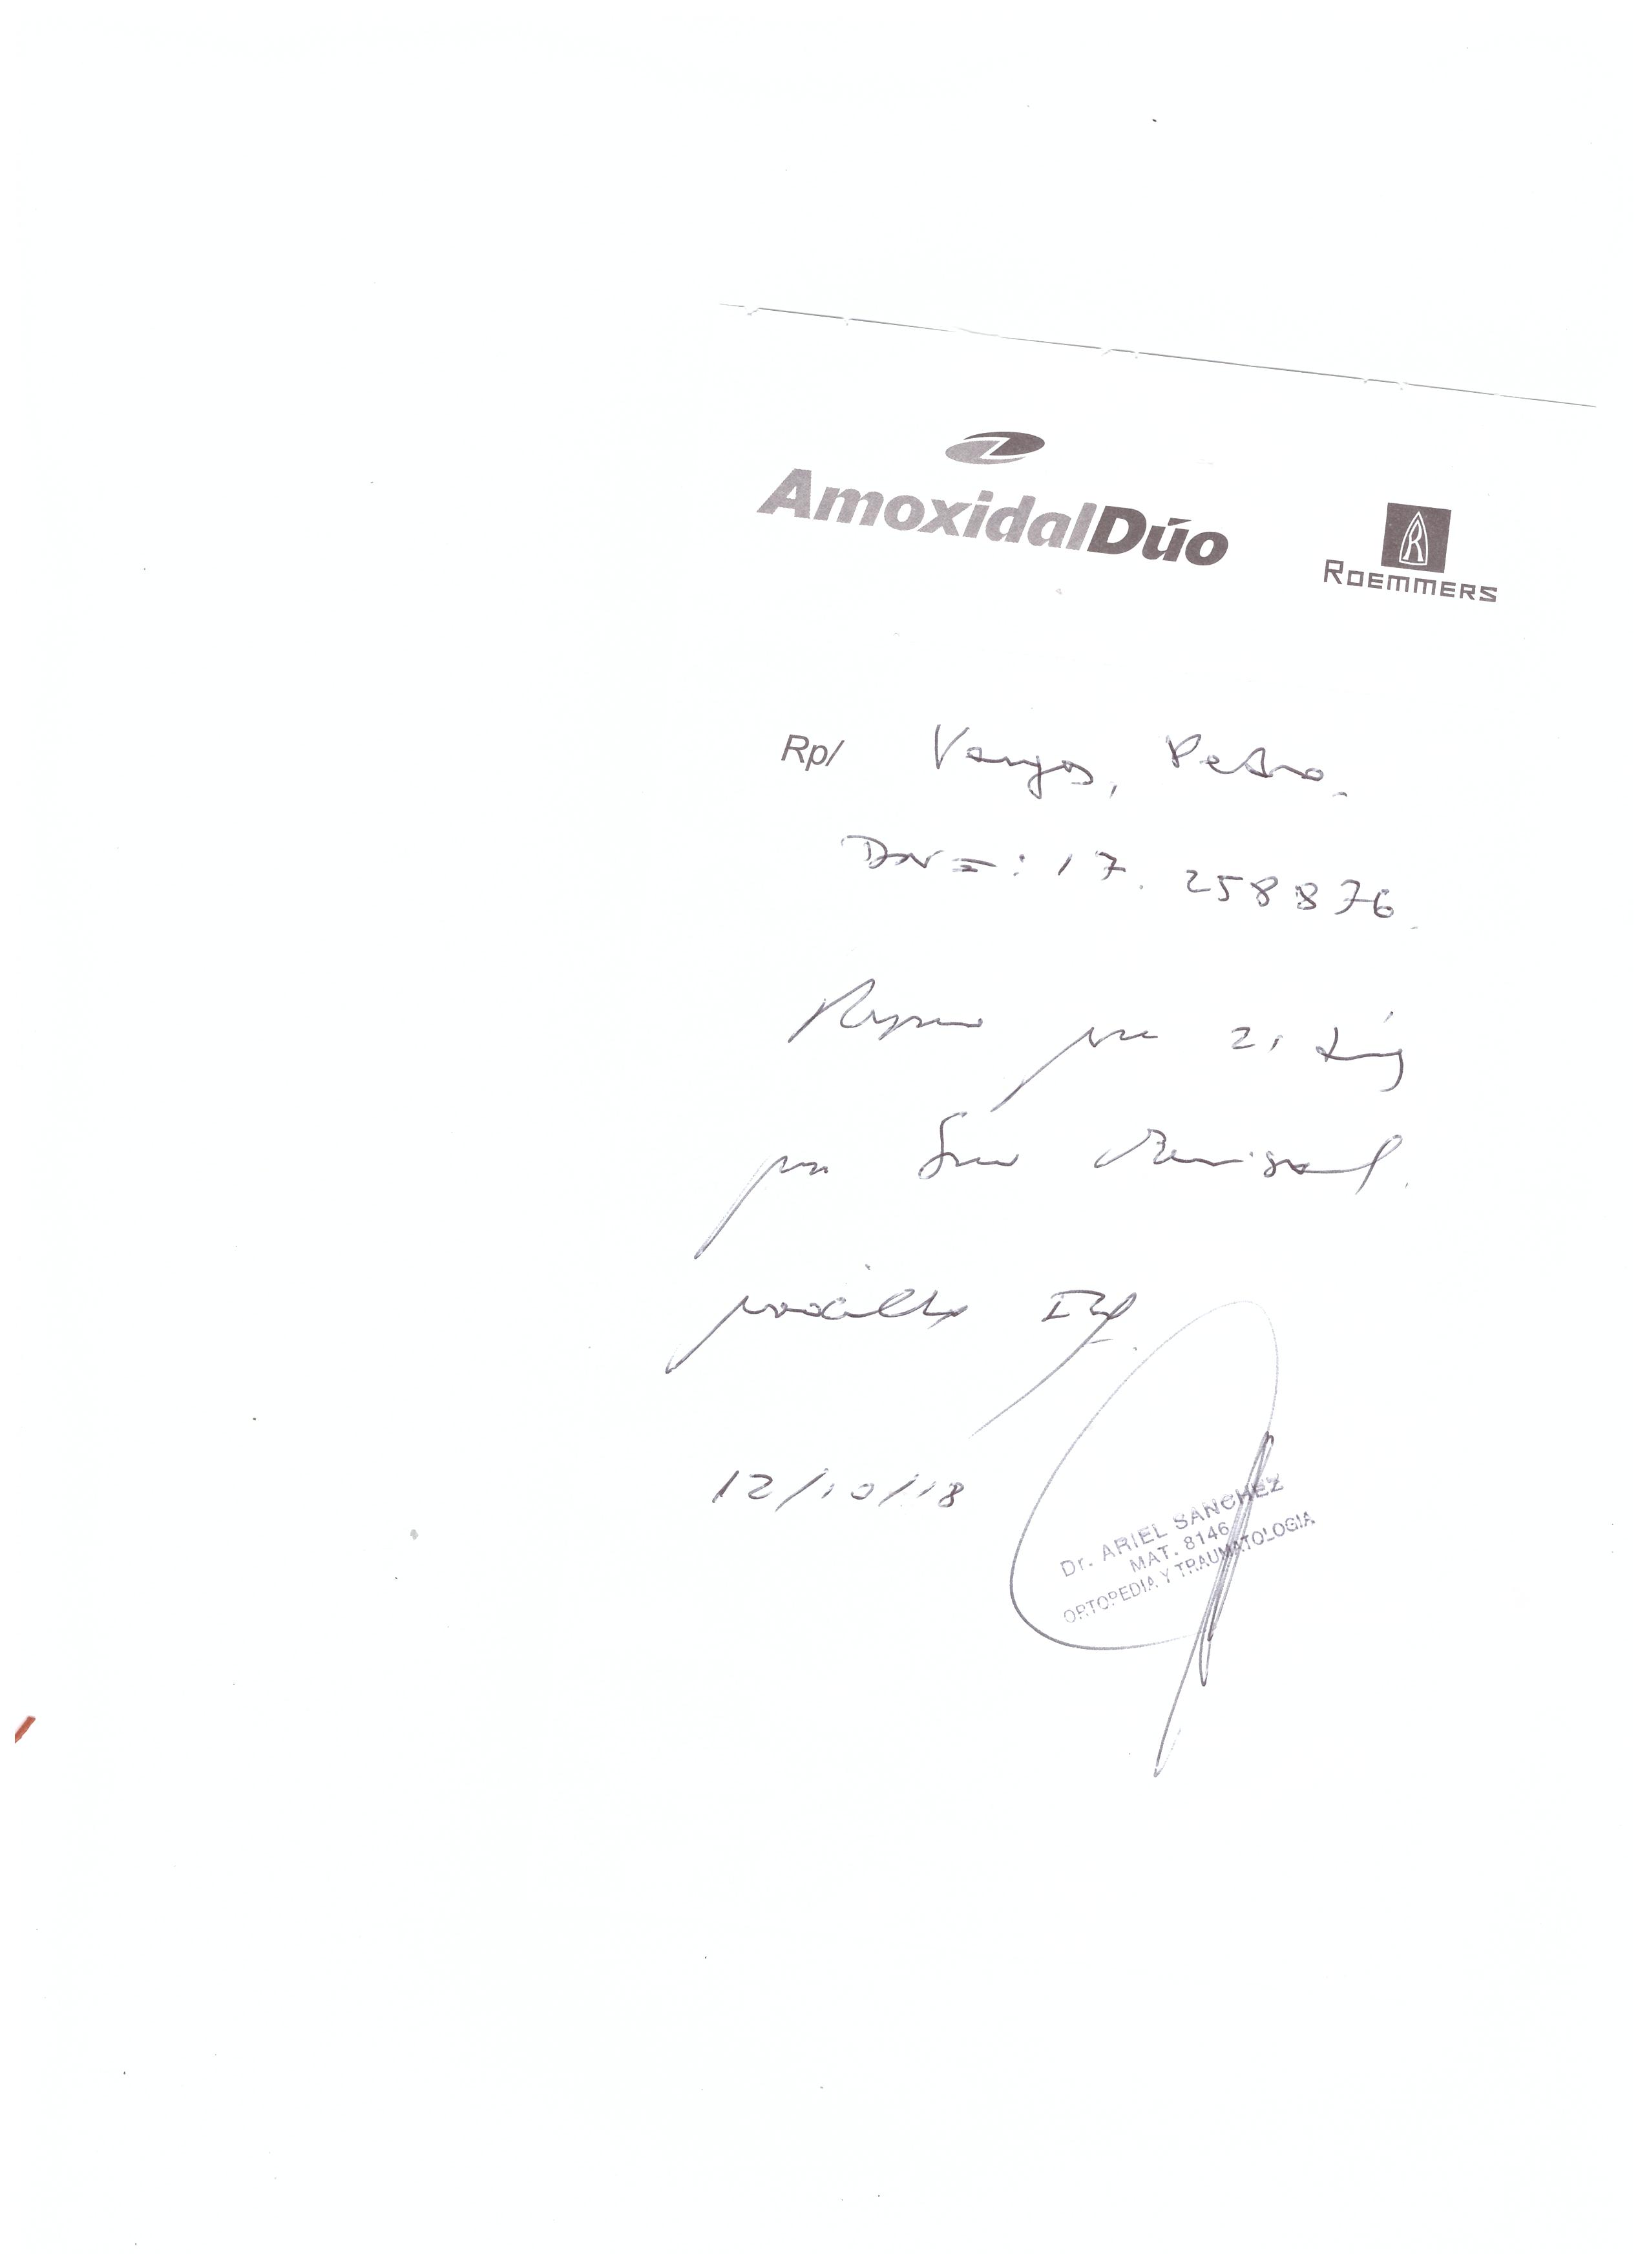 AmoxidalDúo
ROEMMERS
Rp/ Vargas, Pedro.
DNI: 17.258876.
Reposo por 21 días
por Meniscal.
rodilla Izq.
12/10/18
Dr. ARIEL SANCHEZ
MAT. 8146
ORTOPEDIA Y TRAUMATOLOGIA